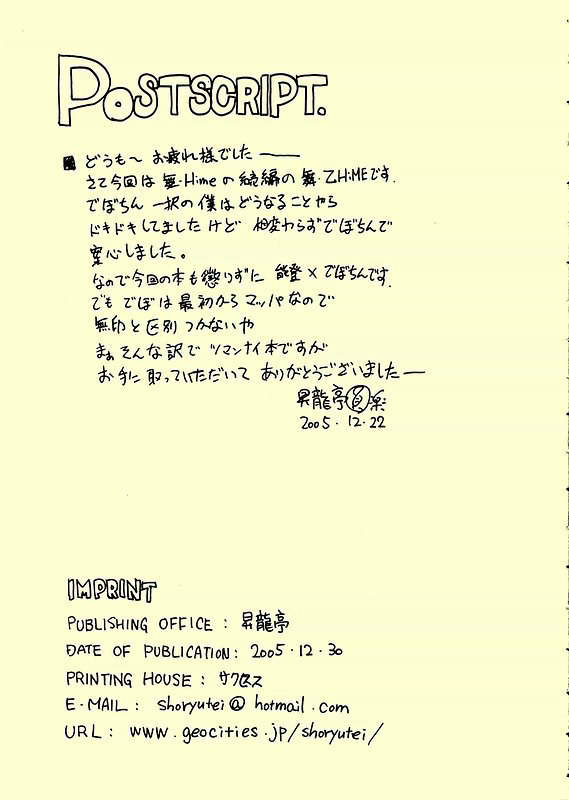 POSTSCRIPT.
どうも〜 お疲れ様でした――
さて今回は 舞-Himeの続編の 舞-乙HiMEです.
でぼちん 一択の僕はどうなることやら
ドキドキしてましたけど 相変わらずでぼちんで
安心しました。
なので今回の本も懲りずに 能登×でぼちんです.
でも でぼは最初からマッパなので
無印と区別つかないや
まぁそんな訳で ツマンナイ本ですが
お手に取っていただいて ありがとうございました―
昇龍亭 楽
2005・12・22
IMPRINT
PUBLISHING OFFICE : 昇龍亭
DATE OF PUBLICATION: 2005・12・30
PRINTING HOUSE : サクセス
E-MAIL : shoryutei@hotmail.com
URL : www.geocities.jp/shoryutei/